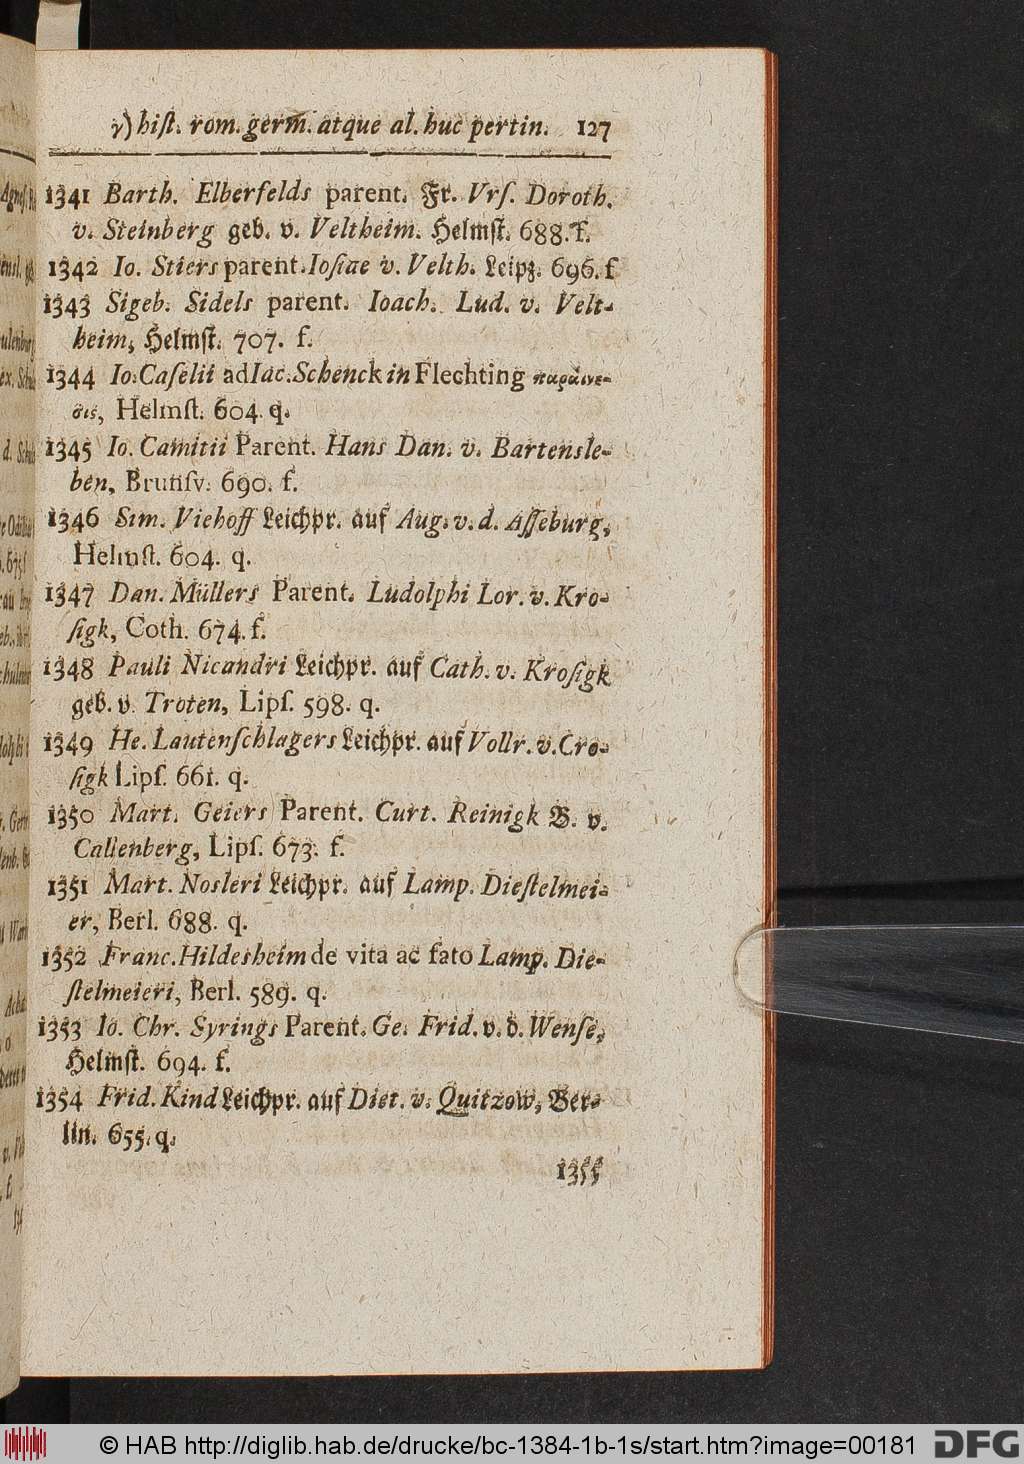 γ) hiſt. rom. germ. atque al. huc pertin. 127
1341 Barth. Elberfelds parent. Fr. Vrſ. Doroth.
v. Steinberg geb. v. Veltheim. Helmſt. 688. f.
1342 Io. Stiers parent. Ioſiae v. Velth. Leipz. 696. f
1343 Sigeb. Sidels parent. Ioach. Lud. v. Velt-
heim, Helmſt. 707. f.
1344 Io. Caſelii ad Iac. Schenck in Flechting παραινε-
σις, Helmſt. 604. q.
1345 Io. Camitii Parent. Hans Dan. v. Bartensle-
ben, Brunſv. 690. f.
1346 Sim. Viehoff Leichpr. auf Aug. v. d. Aſſeburg,
Helmſt. 604. q.
1347 Dan. Müllers Parent. Ludolphi Lor. v. Kro-
ſigk, Coth. 674. f.
1348 Pauli Nicandri Leichpr. auf Cath. v. Kroſigk
geb. v. Troten, Lipſ. 598. q.
1349 He. Lautenſchlagers Leichpr. auf Vollr. v. Cro-
ſigk Lipſ. 661. q.
1350 Mart. Geiers Parent. Curt. Reinigk B. v.
Callenberg, Lipſ. 673. f.
1351 Mart. Nosleri Leichpr. auf Lamp. Dieſtelmei-
er, Berl. 688. q.
1352 Franc. Hildesheim de vita ac fato Lamp. Die-
ſtelmeieri, Berl. 589. q.
1353 Io. Chr. Syrings Parent. Ge. Frid. v. d. Wenſe,
Helmſt. 694. f.
1354 Frid. Kind Leichpr. auf Diet. v. Quitzow, Ber-
lin. 655. q.
1355
© HAB http://diglib.hab.de/drucke/bc-1384-1b-1s/start.htm?image=00181 DFG